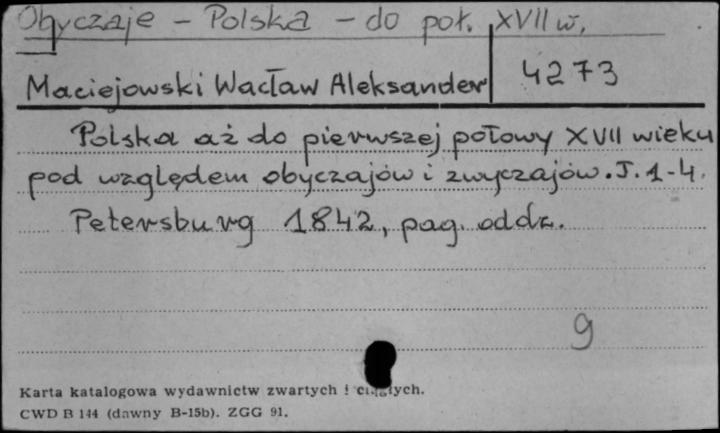 Obyczaje - Polska - do poł. XVII w.
Maciejowski Wacław Aleksander 4273
Polska aż do pierwszej połowy XVII wieku
pod względem obyczajów i zwyczajów. T. 1-4.
Petersburg 1842, pag. oddz.
9
Karta katalogowa wydawnictw zwartych i ciągłych.
CWD B 144 (dawny B-15b). ZGG 91.